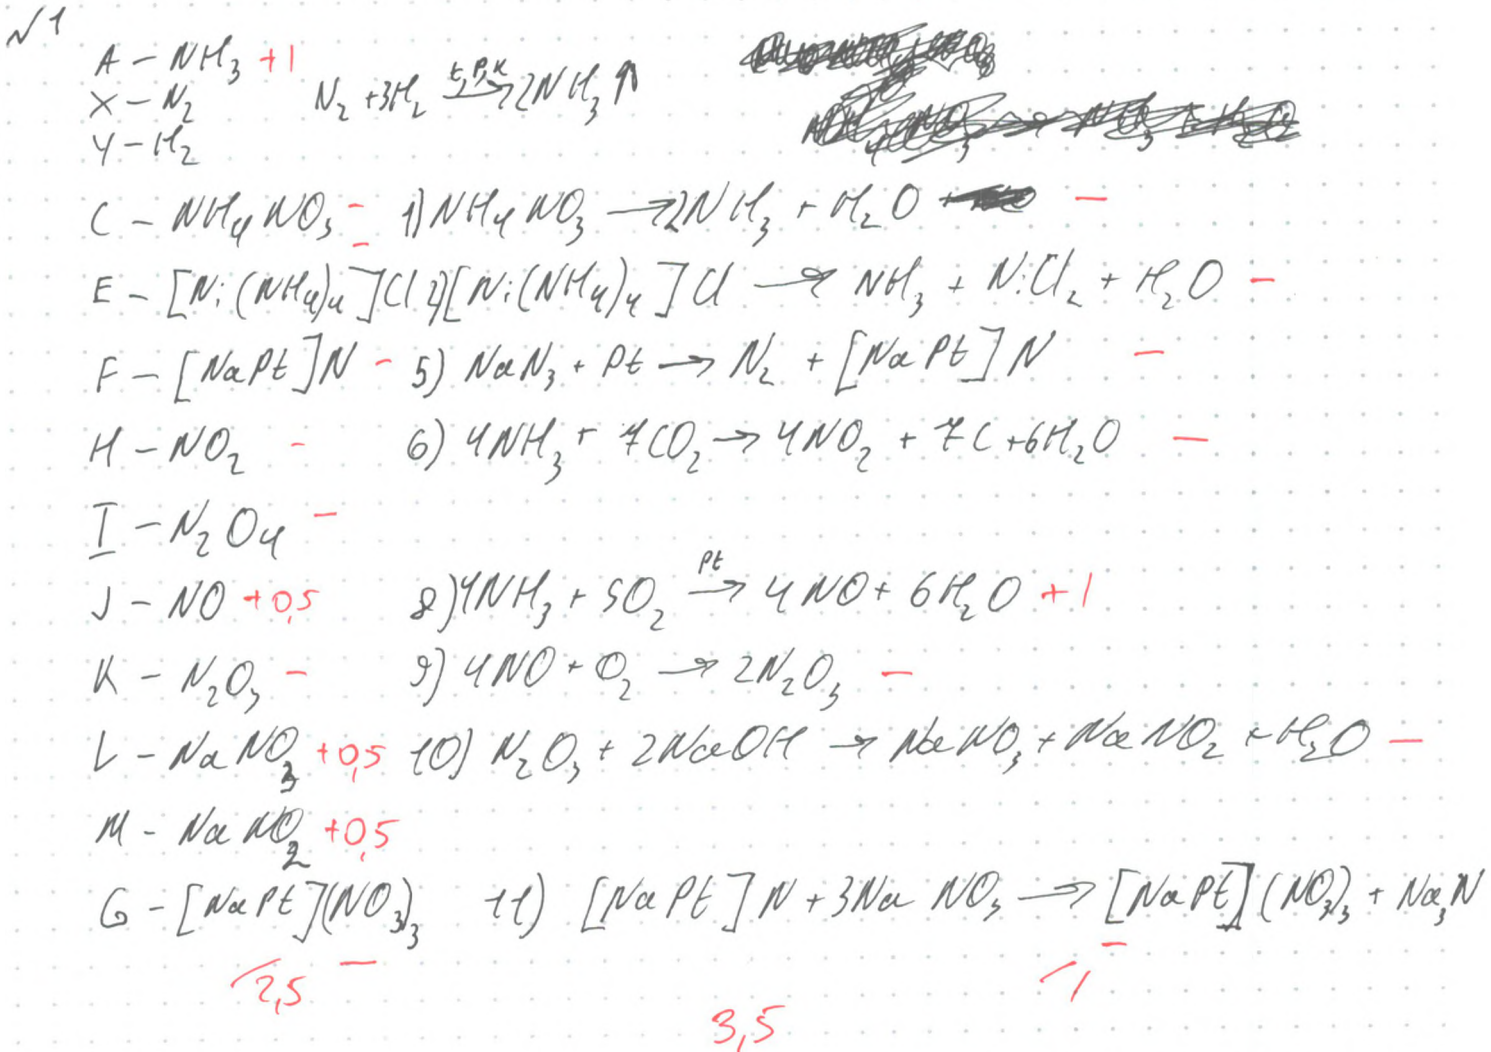 √1
A – NH₃ +1
X – N₂ N₂ + 3H₂ t,P,K → 2NH₃↑
Y – H₂
C – NH₄NO₃ – 1) NH₄NO₃ → 2NH₃ + H₂O + –
E – [Ni(NH₄)₄]Cl – 2) [Ni(NH₄)₄]Cl → NH₃ + NiCl₂ + H₂O –
F – [NaPt]N – 5) NaN₃ + Pt → N₂ + [NaPt]N –
H – NO₂ – 6) 4NH₃ + 7CO₂ → 4NO₂ + 7C + 6H₂O –
I – N₂O₄ –
J – NO +0,5 8) 4NH₃ + 5O₂ Pt → 4NO + 6H₂O +1
K – N₂O₃ – 9) 4NO + O₂ → 2N₂O₃ –
L – NaNO₃ +0,5 10) N₂O₃ + 2NaOH → NaNO₃ + NaNO₂ + H₂O –
M – NaNO₂ +0,5
G – [NaPt](NO₃)₃ – 11) [NaPt]N + 3NaNO₃ → [NaPt](NO₃)₃ + Na₃N –
2,5 1
3,5